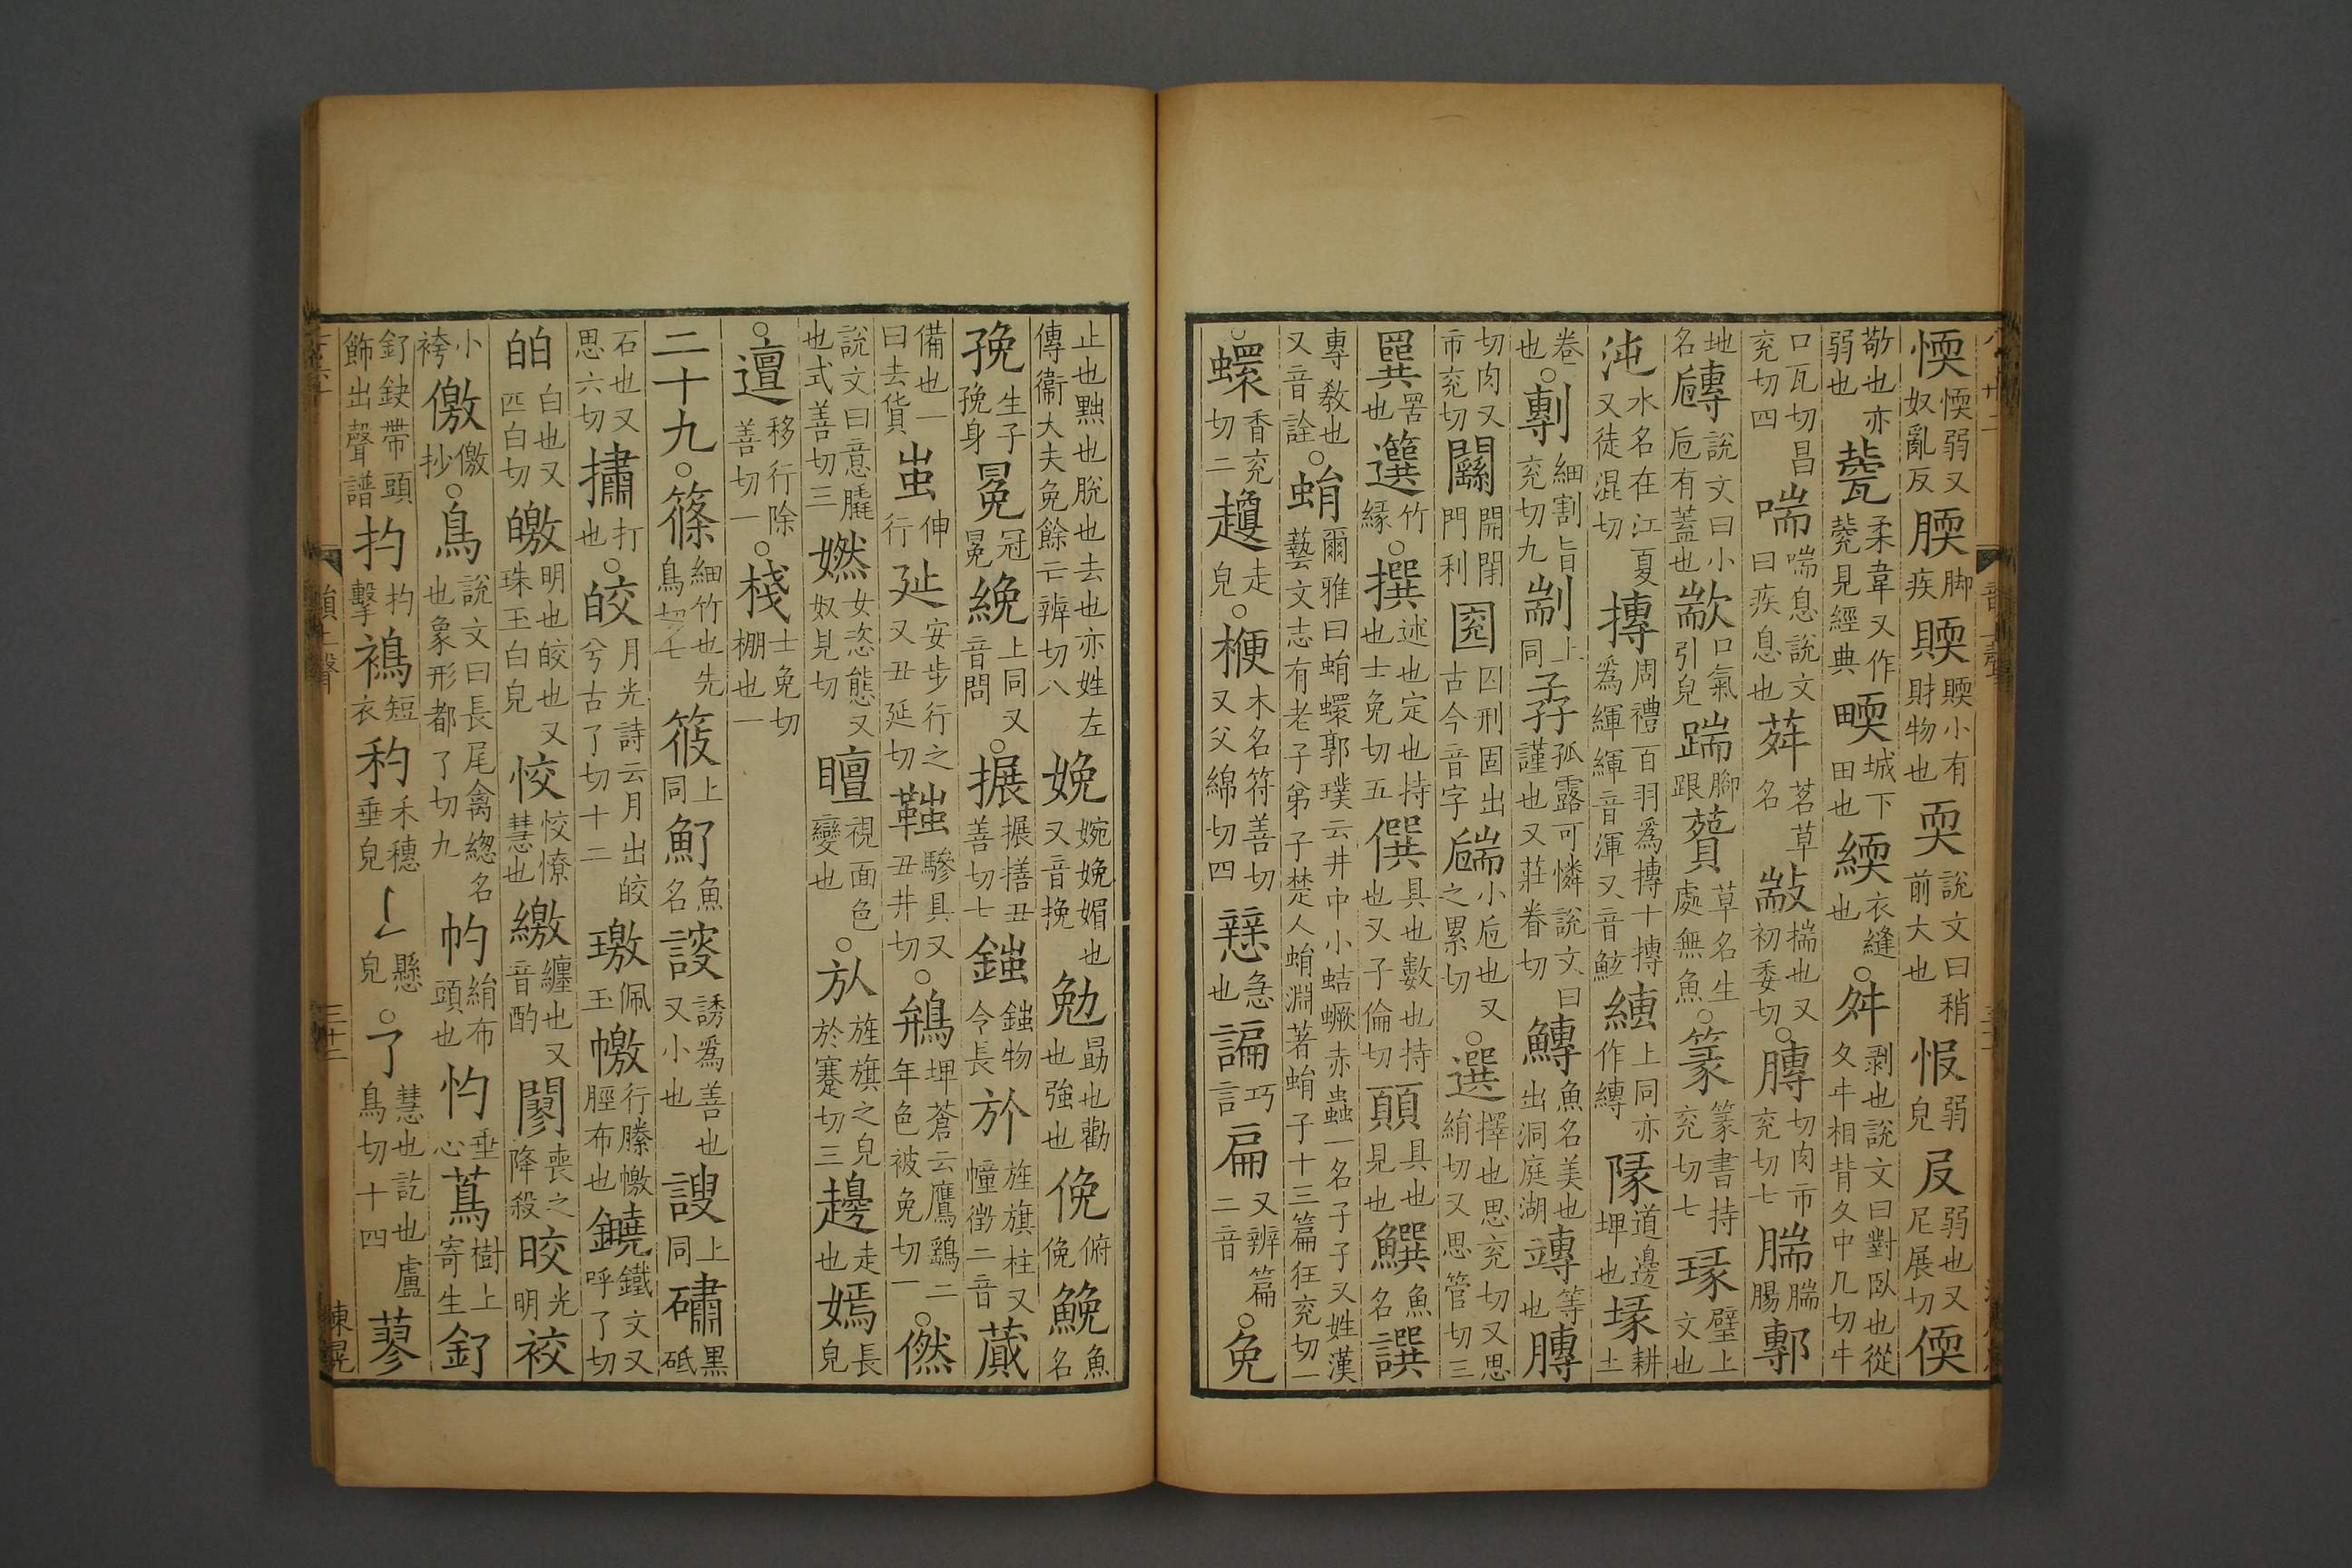 愞愞弱又奴亂反腝脚疾䞂䞂小有財物也耎說文曰稍前大也㤆弱皃𠬝弱也又尼展切偄
敬也亦弱也㼱柔韋又作㼱見經典㬉城下田也緛衣縫也○舛剥也說文曰對臥也從夊㐄相背夊中几切㐄
口瓦切昌兖切四喘喘息說文曰疾息也荈茗草名㪜揣也又初委切○膞切肉市兖切七腨腨腸鄟
地名𧣲說文曰小巵有蓋也歂口氣引皃踹腳跟䓝草名生處無魚○篆篆書持兖切七瑑璧上文也
沌水名在江夏又徒混切摶周禮百羽爲摶十摶爲緷緷音渾又音鯇縳上同亦作縳隊道邊埤也堟耕土
卷也○剸細割旨兖切九剬上同孨孤露可憐說文曰謹也又莊眷切鱄魚名美也出洞庭湖竱等也膞
切肉又市兖切𨷯開閉門利圌囚刑固出古今音字𧣲小巵也又之累切○選擇也思兖切又思絹切又思管切三
羂罟也䉵竹緣○撰述也定也持也士免切五僎具也數也持也又子倫切顨具也見也䱻魚名譔
專敎也又音詮○蜎爾雅曰蜎蠉郭璞云井中小蛣蟩赤蟲一名孑孑又姓漢藝文志有老子弟子楚人蜎淵著蜎子十三篇狂兖切一
○蠉香兖切二䞁走皃○楩木名符善切又父綿切四㦚急也諞巧言扁又辨篇二音○免
止也黜也脫也去也亦姓左傳衞大夫免餘亡辨切八娩婉娩媚也又音挽勉勗也勸也強也俛俯俛鮸魚名
㝃生子㝃身冕冠冕絻上同又音問○搌搌㨫丑善切七䥘䥘物令長㫃旌旗柱又幢徴二音蕆
備也一曰去貨蚩伸行㢟安步行之又丑延切𩊁驂具又丑井切○鴘埤蒼云鷹鷂二年色被免切一○㒄
說文曰意膬也式善切三嫨女恣態又奴見切䁴視面色變也○㫃旌旗之皃於蹇切三䞁走也嫣長皃
○邅移行除善切一○棧士免切棚也一
二十九○篠細竹也先鳥切七筱上同魡魚名謏誘爲善也又小也謏上同䃤黒砥
石也又思六切㩋打也○皎月光詩云月出皎兮古了切十二璬佩玉㡱行縢㡱脛布也鐃鐵文又呼了切
㿟白也又匹白切皦明也皎也又珠玉白皃恔恔憭慧也繳纏也又音酌𨶪喪之降殺晈光明䘨
小袴儌儌抄○鳥說文曰長尾禽緫名也象形都了切九𢁕絹布頭也㣿垂心蔦樹上寄生釕
釕鈌帶頭飾出聲譜扚扚擊䙚短衣𥝖禾穗垂皃𠄌懸皃○了慧也訖也盧鳥切十四蓼